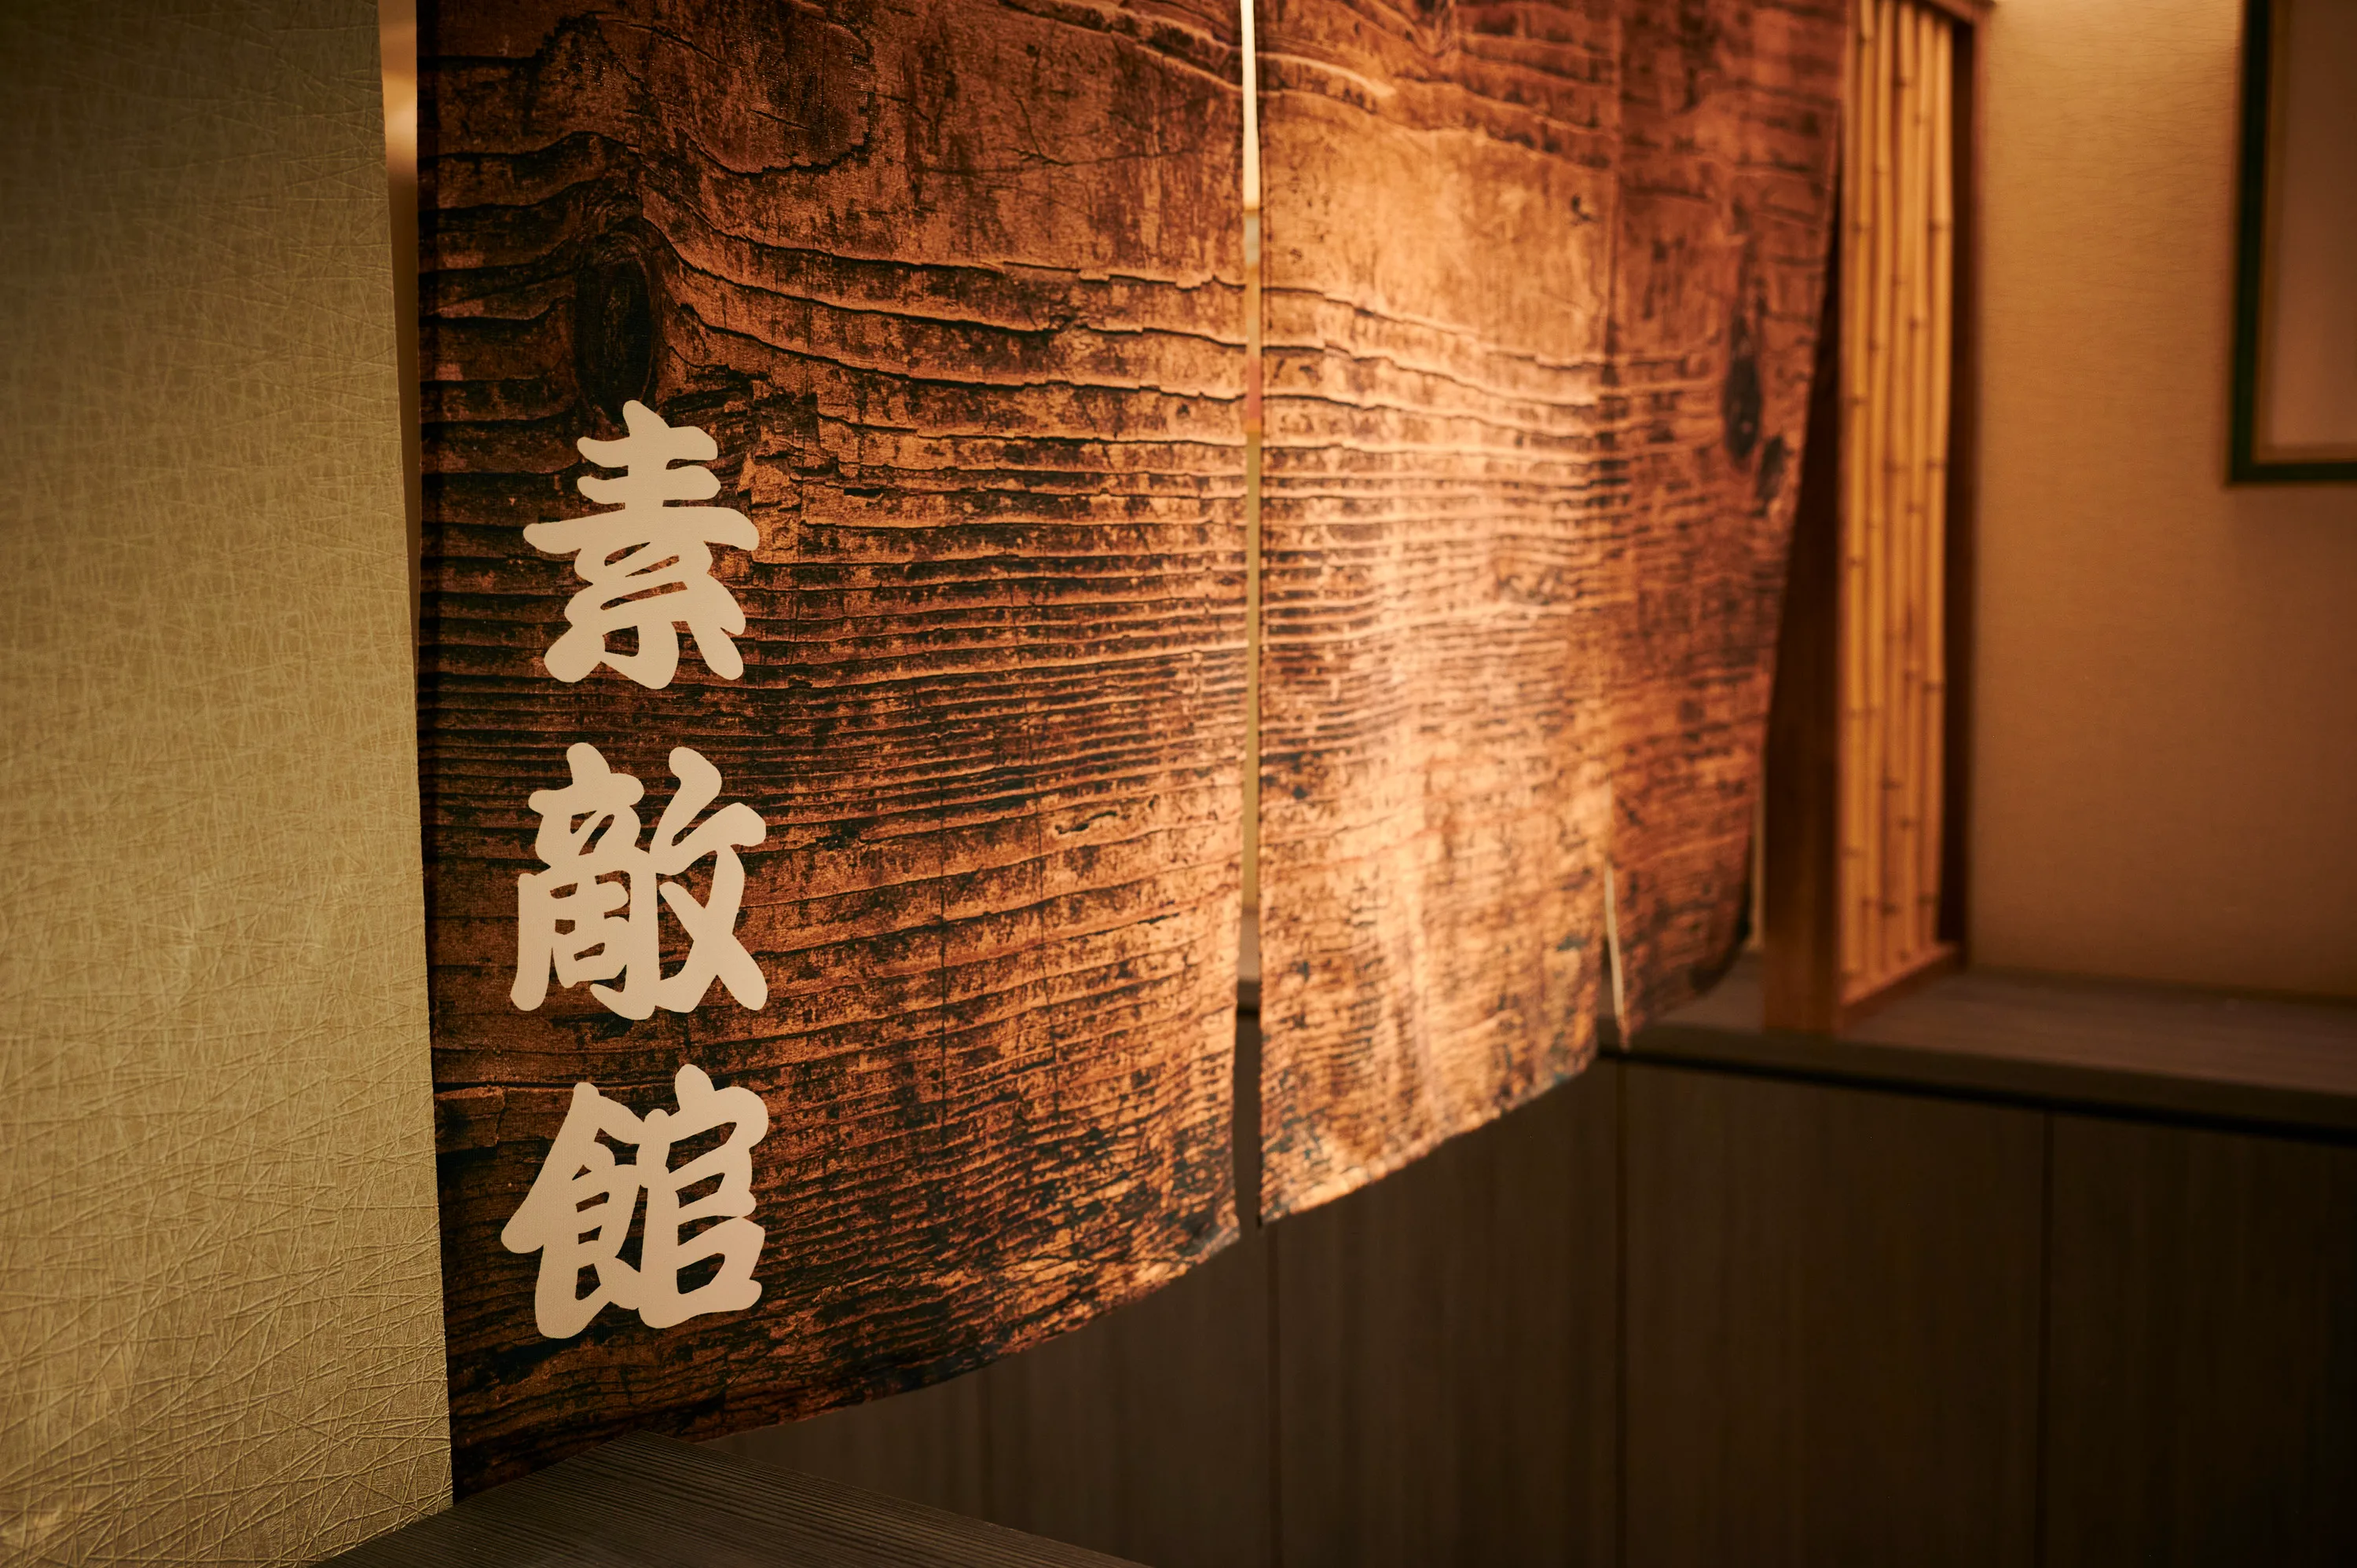 素敵館